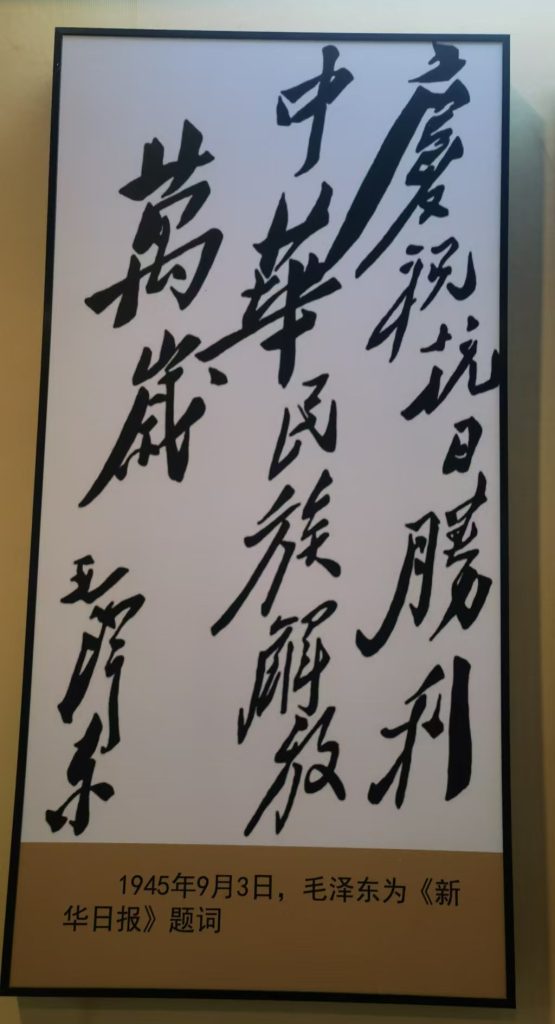 慶祝抗日勝利
中華民族解放
萬歲
毛澤东
1945年9月3日，毛泽东为《新
华日报》题词